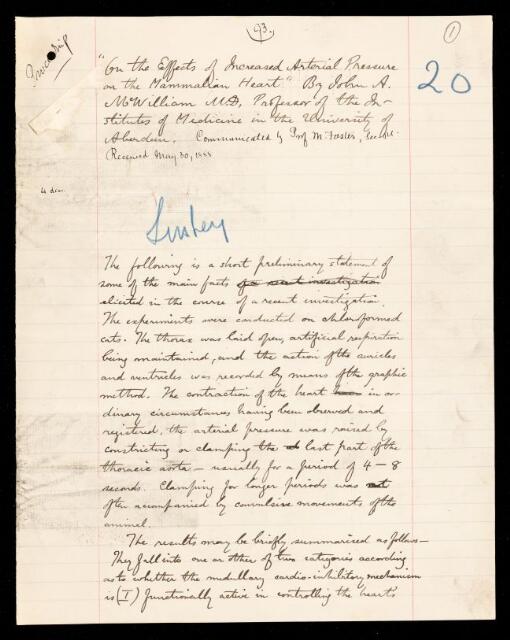 93.
①
20
"On the Effects of Increased Arterial Pressure
on the Mammalian Heart" By John A.
McWilliam M.D., Professor of the In-
stitutes of Medicine in the University of
Aberdeen. Communicated by Prof M. Foster, Sec. R.S.
Received May 30, 1888
The following is a short preliminary statement of
some of the main facts of a recent investigation
elicited in the course of a recent investigation.
The experiments were conducted on chloroformed
cats. The thorax was laid open, artificial respiration
being maintained, and the action of the auricles
and ventricles was recorded by means of the graphic
method. The contraction of the heart in or-
dinary circumstances having been observed and
registered, the arterial pressure was raised by
constricting or clamping the last part of the
thoracic aorta — usually for a period of 4 – 8
seconds. Clamping for longer periods was
often accompanied by convulsive movements of the
animal.
The results may be briefly summarised as follows—
They fall into one or other of two categories according
as to whether the medullary cardio-inhibitory mechanism
is (I) functionally active in controlling the heart's